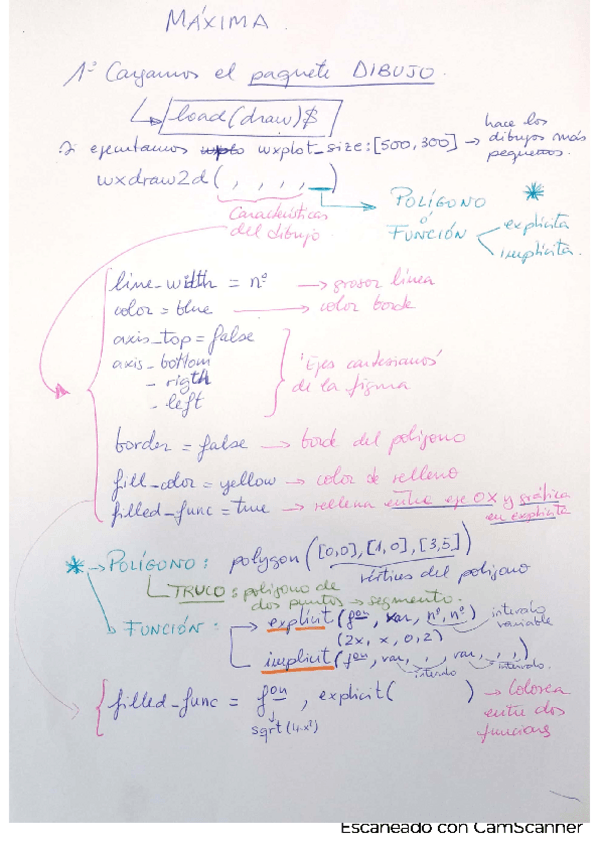 MÁXIMA
1º Cargamos el paquete DIBUJO.
load(draw)$
2º ejecutamos wxplot_size:[500,300] → hace los dibujos más pequeños.
wxdraw2d( , , , , )
Características del dibujo.
POLÍGONO
ó
FUNCIÓN
explícita
implícita.
line_width = nº → grosor línea
color = blue → color borde
axis_top = false
axis_bottom
- rigth
- left
"Ejes cartesianos" de la figura
border = false → borde del polígono
fill_color = yellow → color de relleno
filled_func = true → rellena entre eje OX y gráfica en explícita
* → POLÍGONO: polygon([0,0],[1,0],[3,5])
vértices del polígono
TRUCO: polígono de dos puntos → segmento.
FUNCIÓN: explicit(fon, var, nº, nº) intervalo variable
(2x, x, 0, 2)
implicit(fon, var, , , var, , , )
intervalo intervalo.
filled_func = fon, explicit( ) → Colorea entre dos funciones
sqrt(4-x²)
Escaneado con CamScanner